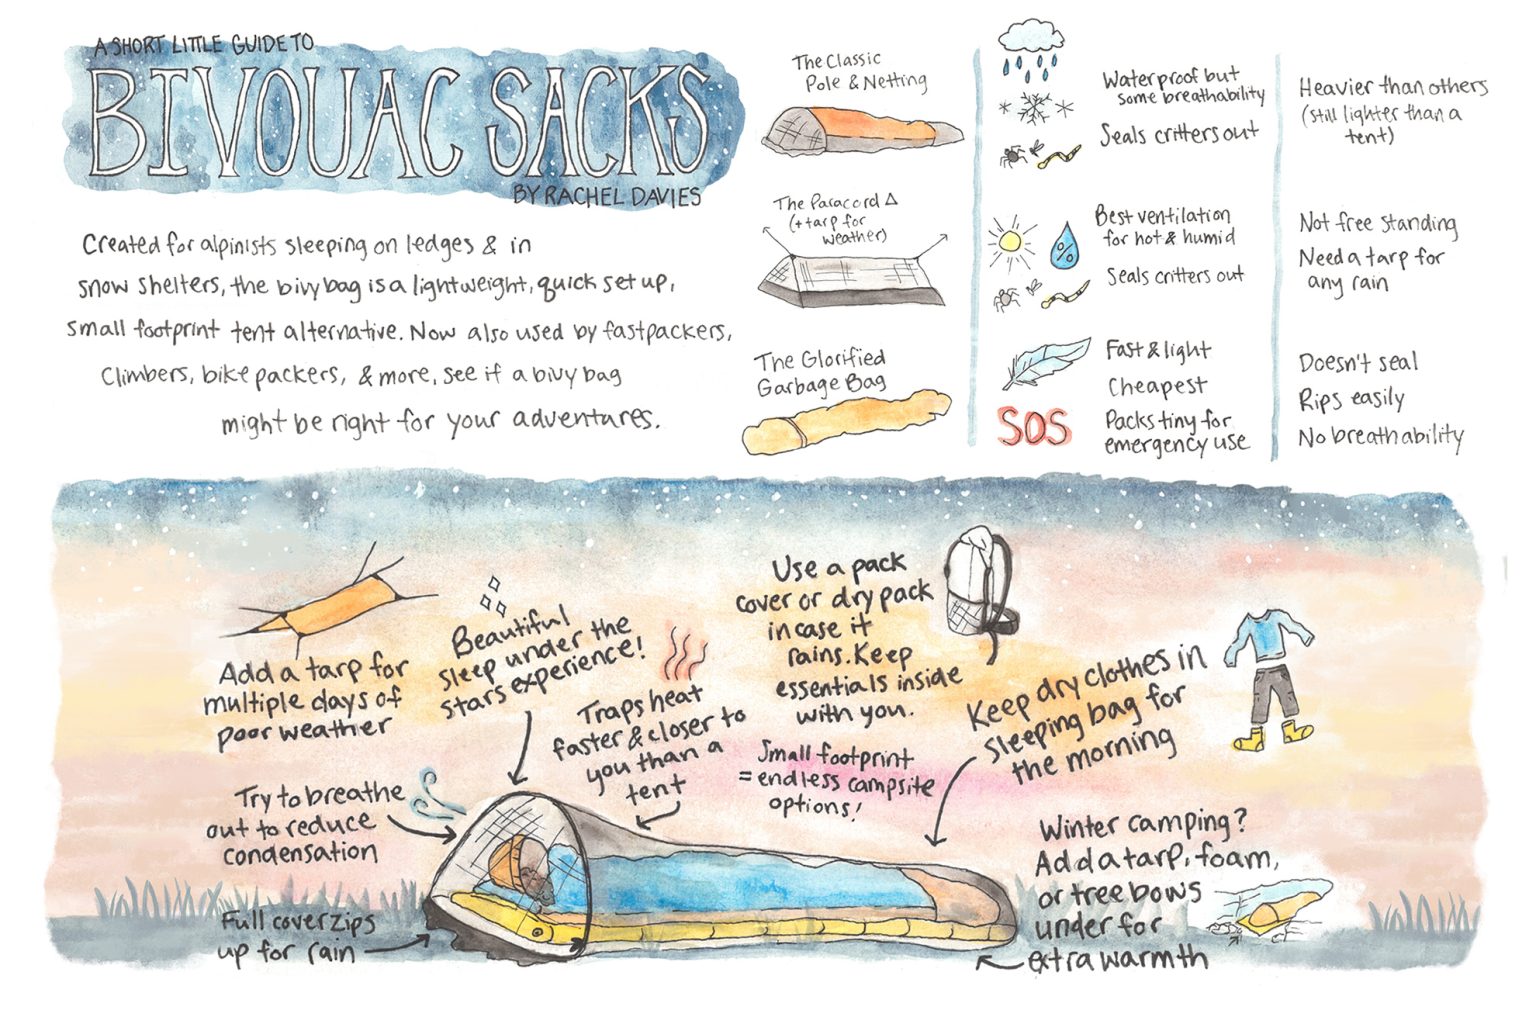 A SHORT LITTLE GUIDE TO
BIVOUAC SACKS
BY RACHEL DAVIES
Created for alpinists sleeping on ledges & in
snow shelters, the bivy bag is a lightweight, quick set up,
small footprint tent alternative. Now also used by fastpackers,
climbers, bike packers, & more, see if a bivy bag
might be right for your adventures.
The Classic
Pole & Netting
Waterproof but
some breathability
Seals critters out
Heavier than others
(still lighter than a
tent)
The Paracord Δ
(+ tarp for
weather)
%
Best ventilation
for hot & humid
Seals critters out
Not free standing
Need a tarp for
any rain
The Glorified
Garbage Bag
SOS
Fast & light
Cheapest
Packs tiny for
emergency use
Doesn't seal
Rips easily
No breathability
Add a tarp for
multiple days of
poor weather
Beautiful
sleep under the
stars experience!
Traps heat
faster & closer to
you than a
tent
Use a pack
cover or dry pack
in case it
rains. Keep
essentials inside
with you.
Small footprint
= endless campsite
options!
Keep dry clothes in
sleeping bag for
the morning
Try to breathe
out to reduce
condensation
Full cover zips
up for rain
Winter camping?
Add a tarp, foam,
or tree bows
under for
extra warmth